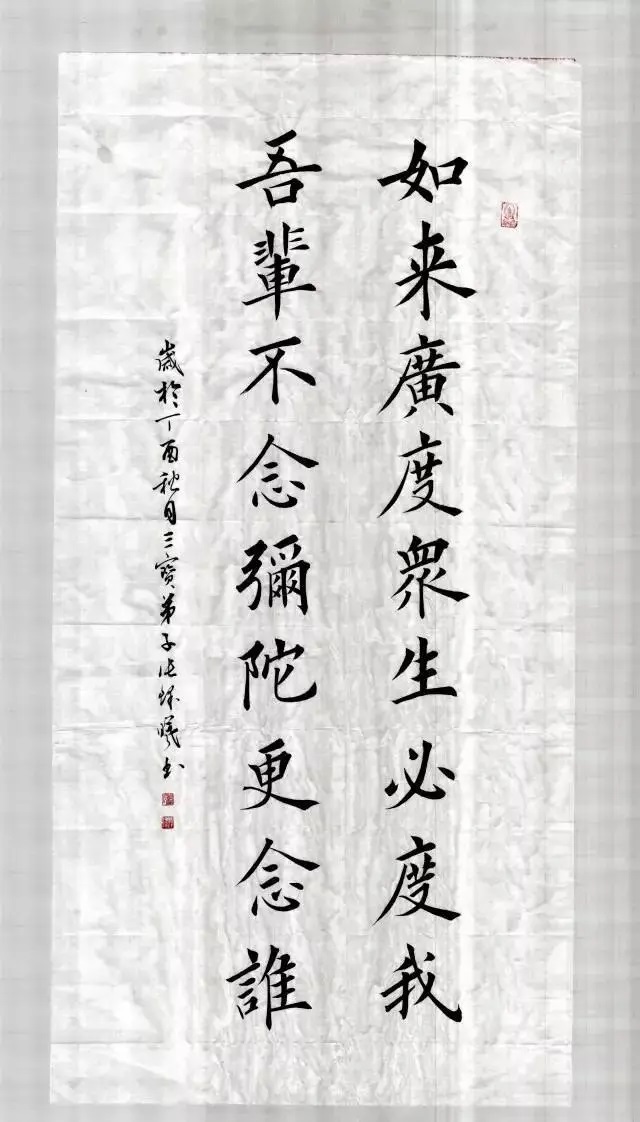 如来廣度衆生必度我
吾輩不念彌陀更念誰
歲於丁酉秋月三寶弟子張怀曦书